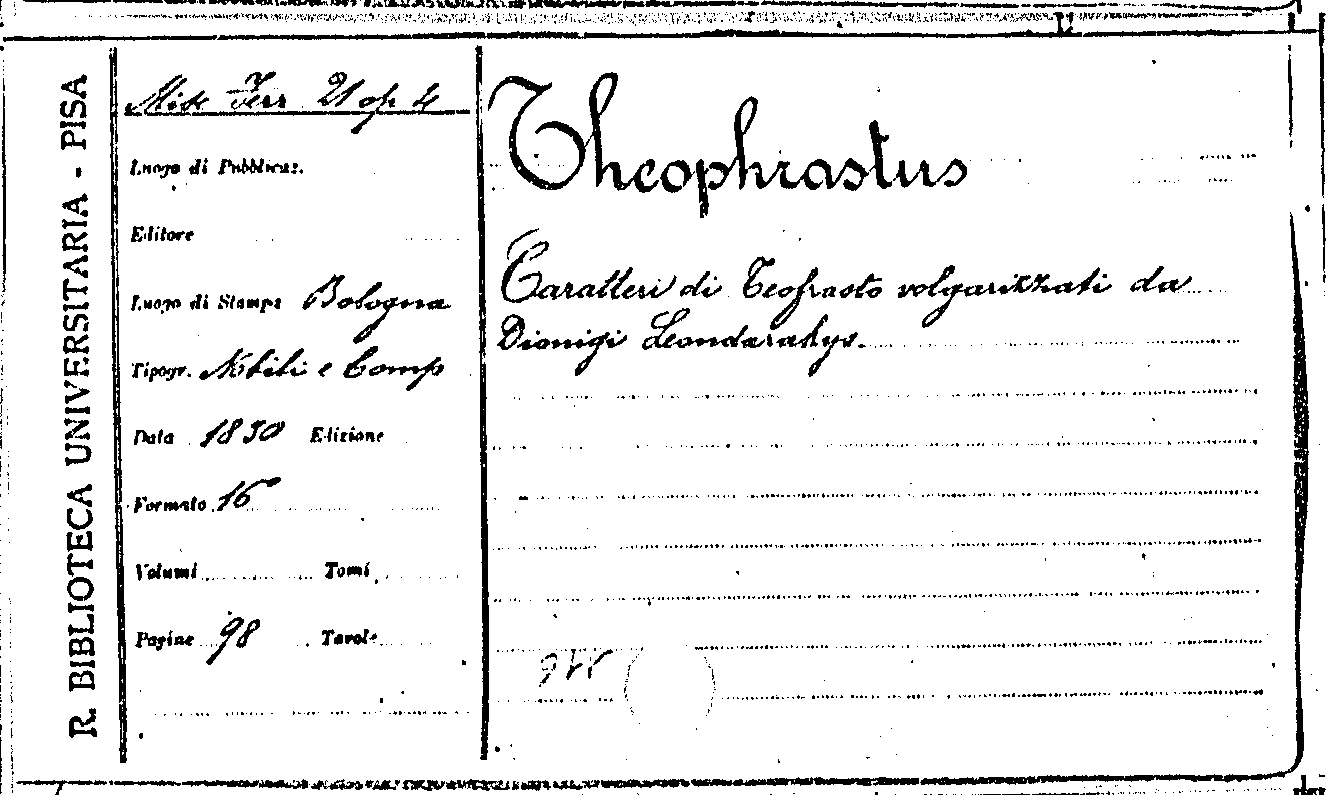 R. BIBLIOTECA UNIVERSITARIA - PISA
Misc Ferr 21 op 4
Luogo di Pubblicaz.
Editore
Luogo di Stampa Bologna
Tipogr. Nobili e Comp
Data 1830 Edizione
Formato 16°
Volumi Tomi
Pagine 98 Tavole
Theophrastus
Caratteri di Teofrasto volgarizzati da
Dionigi Leondarakys.